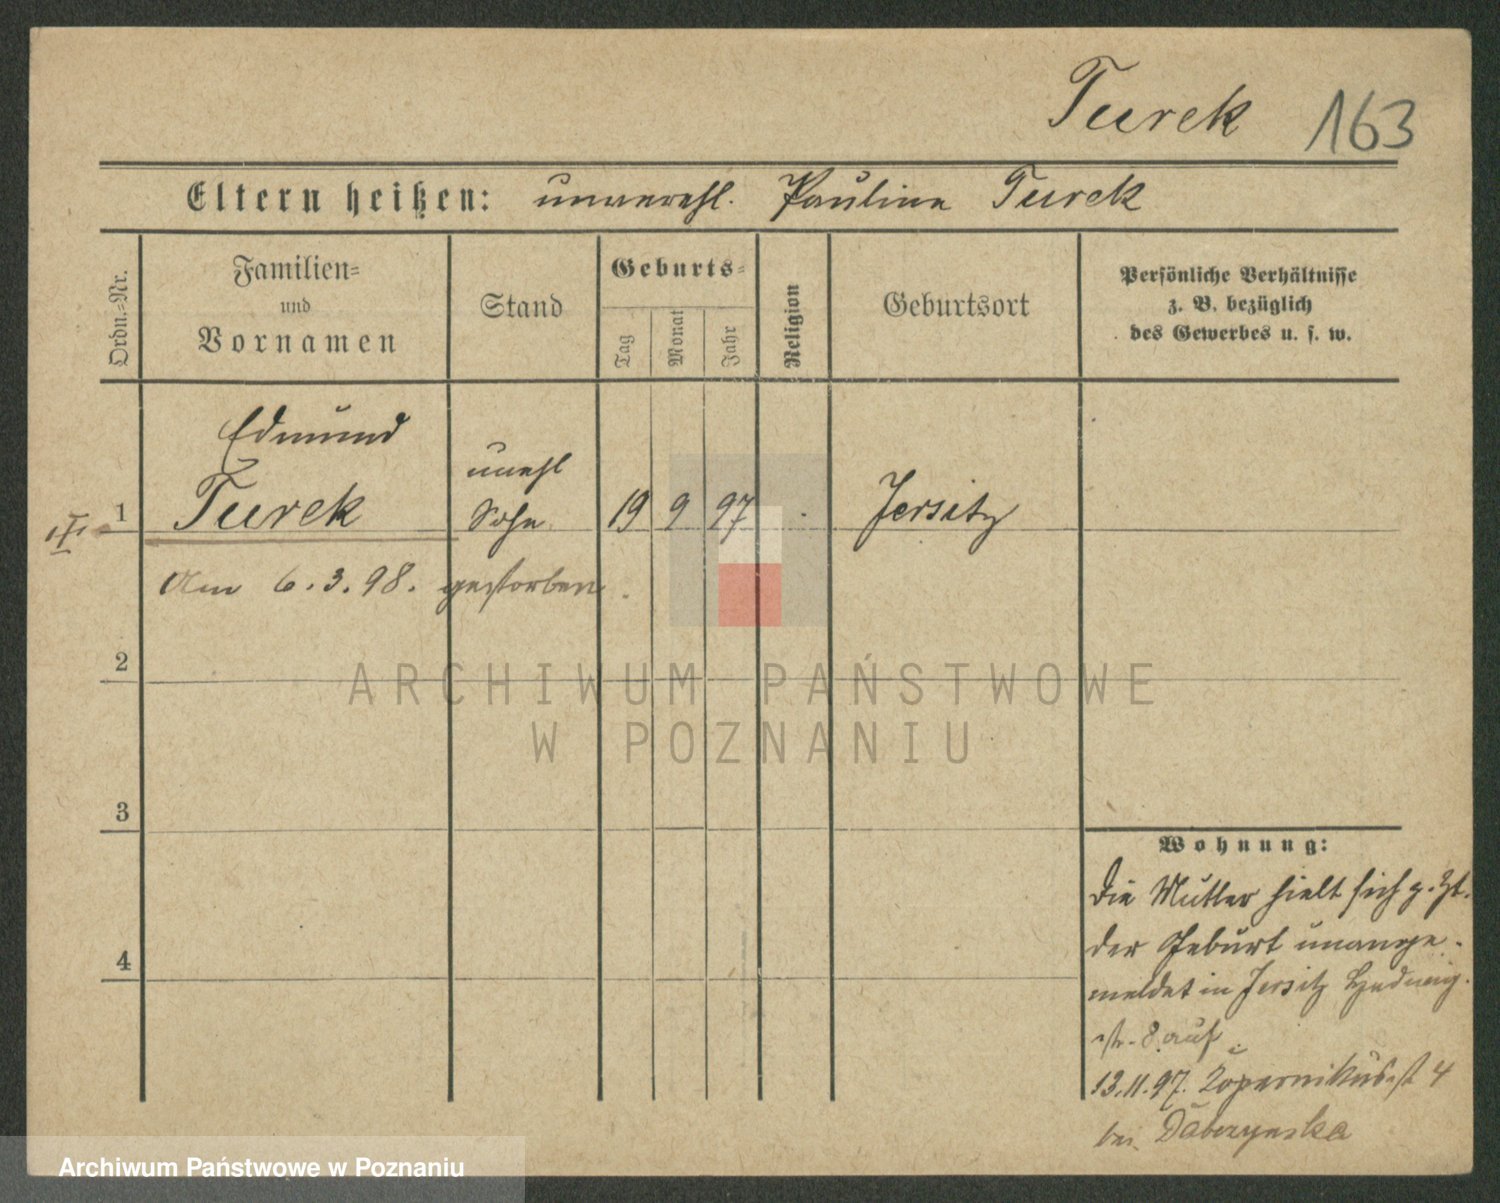 Turek 163
Eltern heißen: unverehl. Paulina Turek
Ordn.-Nr.
Familien-
und
Vornamen
Stand
Geburts-
Tag
Monat
Jahr
Religion
Geburtsort
Persönliche Verhältnisse
z. B. bezüglich
des Gewerbes u. s. w.
1
Edmund
Turek
unehl
Sohn
19 9 97
Jersitz
Am 6.3.98. gestorben.
2
ARCHIWUM PAŃSTWOWE
W POZNANIU
3
4
Wohnung:
Die Mutter hielt sich z. Zt.
der Geburt unange-
meldet in Jersitz Hedwig-
str. 8 auf.
13.11.97. Kopernikusst 4
bei
Archiwum Państwowe w Poznaniu